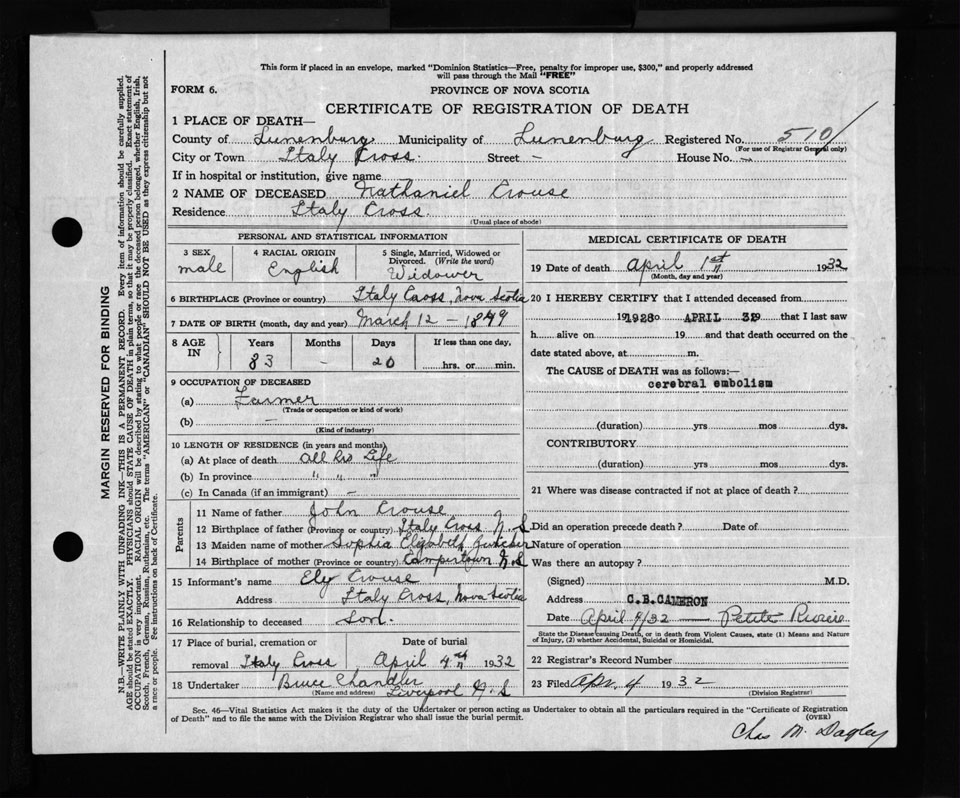 This form if placed in an envelope, marked "Dominion Statistics—Free, penalty for improper use, $300," and properly addressed
will pass through the Mail "FREE"
FORM 6.
PROVINCE OF NOVA SCOTIA
CERTIFICATE OF REGISTRATION OF DEATH
1 PLACE OF DEATH—
County of Lunenburg Municipality of Lunenburg Registered No. 510
(For use of Registrar General only)
City or Town Italy Cross. Street – House No. –
If in hospital or institution, give name
2 NAME OF DECEASED Nathaniel Crouse
Residence Italy Cross.
(Usual place of abode)
PERSONAL AND STATISTICAL INFORMATION
3 SEX
male
4 RACIAL ORIGIN
English
5 Single, Married, Widowed or
Divorced. (Write the word)
Widower
6 BIRTHPLACE (Province or country) Italy Cross, Nova Scotia
7 DATE OF BIRTH (month, day and year) March 12 – 1849
8 AGE
IN
Years Months Days If less than one day,
83 – 20 hrs. or min.
9 OCCUPATION OF DECEASED
(a) Farmer
(Trade or occupation or kind of work)
(b) –
(Kind of industry)
10 LENGTH OF RESIDENCE (in years and months)
(a) At place of death All his Life
(b) In province " " "
(c) In Canada (if an immigrant) –
Parents
11 Name of father John Crouse
12 Birthplace of father (Province or country) Italy Cross N. S
13 Maiden name of mother Sophia Elizabeth
14 Birthplace of mother (Province or country) N.S
15 Informant's name Ely Crouse
Address Italy Cross, Nova Scotia
16 Relationship to deceased Son.
17 Place of burial, cremation or
removal Italy Cross
Date of burial
April 4th 1932
18 Undertaker Bruce Chandler
(Name and address) Liverpool N. S
MEDICAL CERTIFICATE OF DEATH
19 Date of death April 1st 1932
(Month, day and year)
20 I HEREBY CERTIFY that I attended deceased from
1928 APRIL that I last saw
h alive on 19 and that death occurred on the
date stated above, at m.
The CAUSE of DEATH was as follows:—
cerebral embolism
(duration) yrs mos dys.
CONTRIBUTORY
(duration) yrs mos dys.
21 Where was disease contracted if not at place of death?
Did an operation precede death? Date of
Nature of operation
Was there an autopsy?
(Signed) M.D.
Address C.B.CAMERON
Date April 4/32 Petite Riviere
State the Disease causing Death, or in death from Violent Causes, state (1) Means and Nature
of Injury, (2) whether Accidental, Suicidal or Homicidal.
22 Registrar's Record Number
23 Filed Apr. 4 1932
(Division Registrar)
Sec. 46—Vital Statistics Act makes it the duty of the Undertaker or person acting as Undertaker to obtain all the particulars required in the "Certificate of Registration
of Death" and to file the same with the Division Registrar who shall issue the burial permit.
(OVER)
Chas M. Dagley
MARGIN RESERVED FOR BINDING
N.B.—WRITE PLAINLY WITH UNFADING INK—THIS IS A PERMANENT RECORD. Every item of information should be carefully supplied.
AGE should be stated EXACTLY. PHYSICIANS should STATE CAUSE OF DEATH in plain terms, so that it may be properly classified. Exact statement of
OCCUPATION is very important. RACIAL ORIGIN will be described by stating to what people or race the deceased person belonged, whether English, Irish,
Scotch, French, German, Russian, Ruthenian, etc. The terms "AMERICAN" or "CANADIAN" SHOULD NOT BE USED as they express citizenship but not
a race or people. See instructions on back of Certificate.